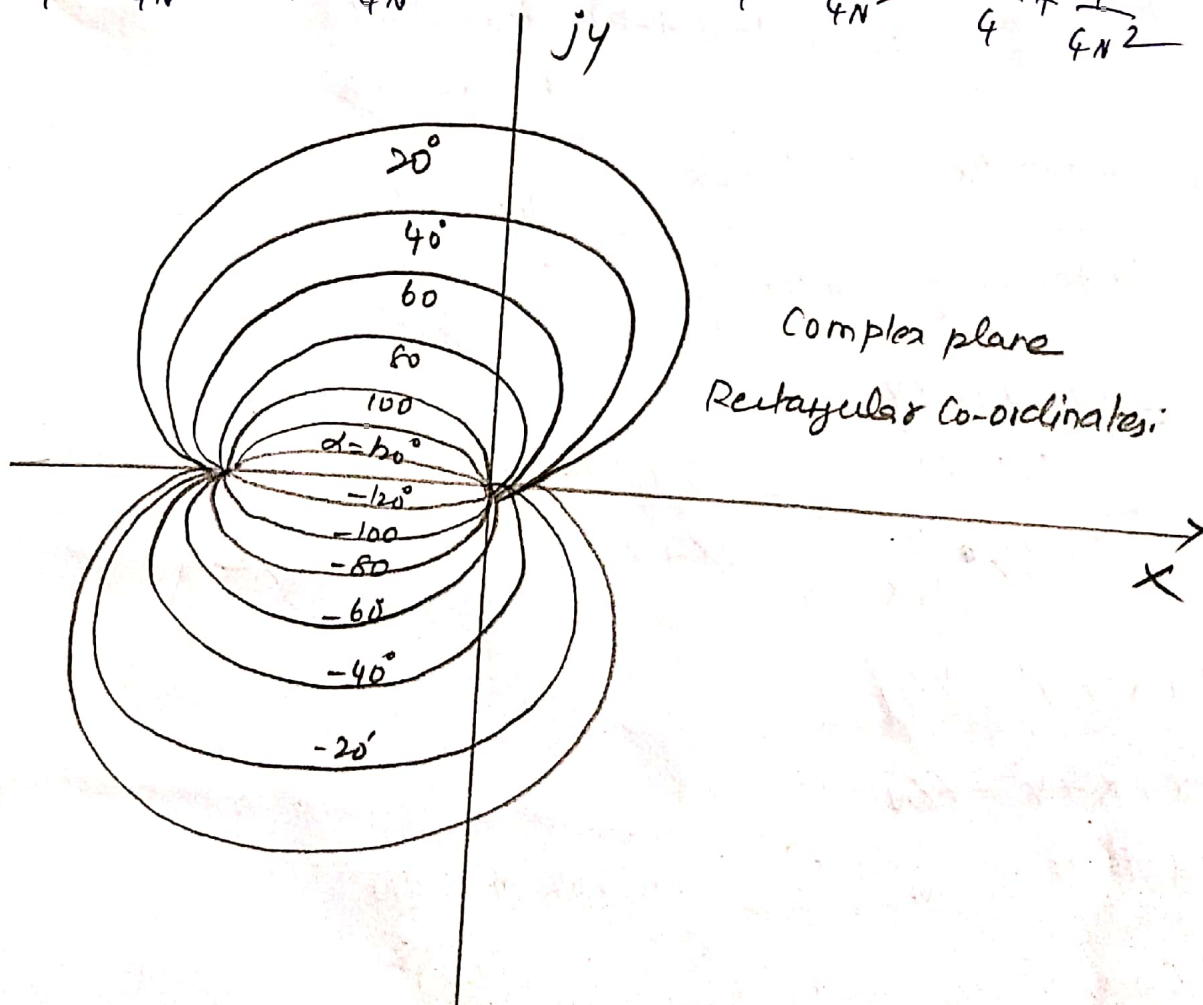 4N 4N 4N 4 + 1
4N2
jy
20°
40°
60
80
100
α=120°
-120°
-100
-80
-60
-40°
-20
Complex plane
Rectangular Co-ordinates:
X